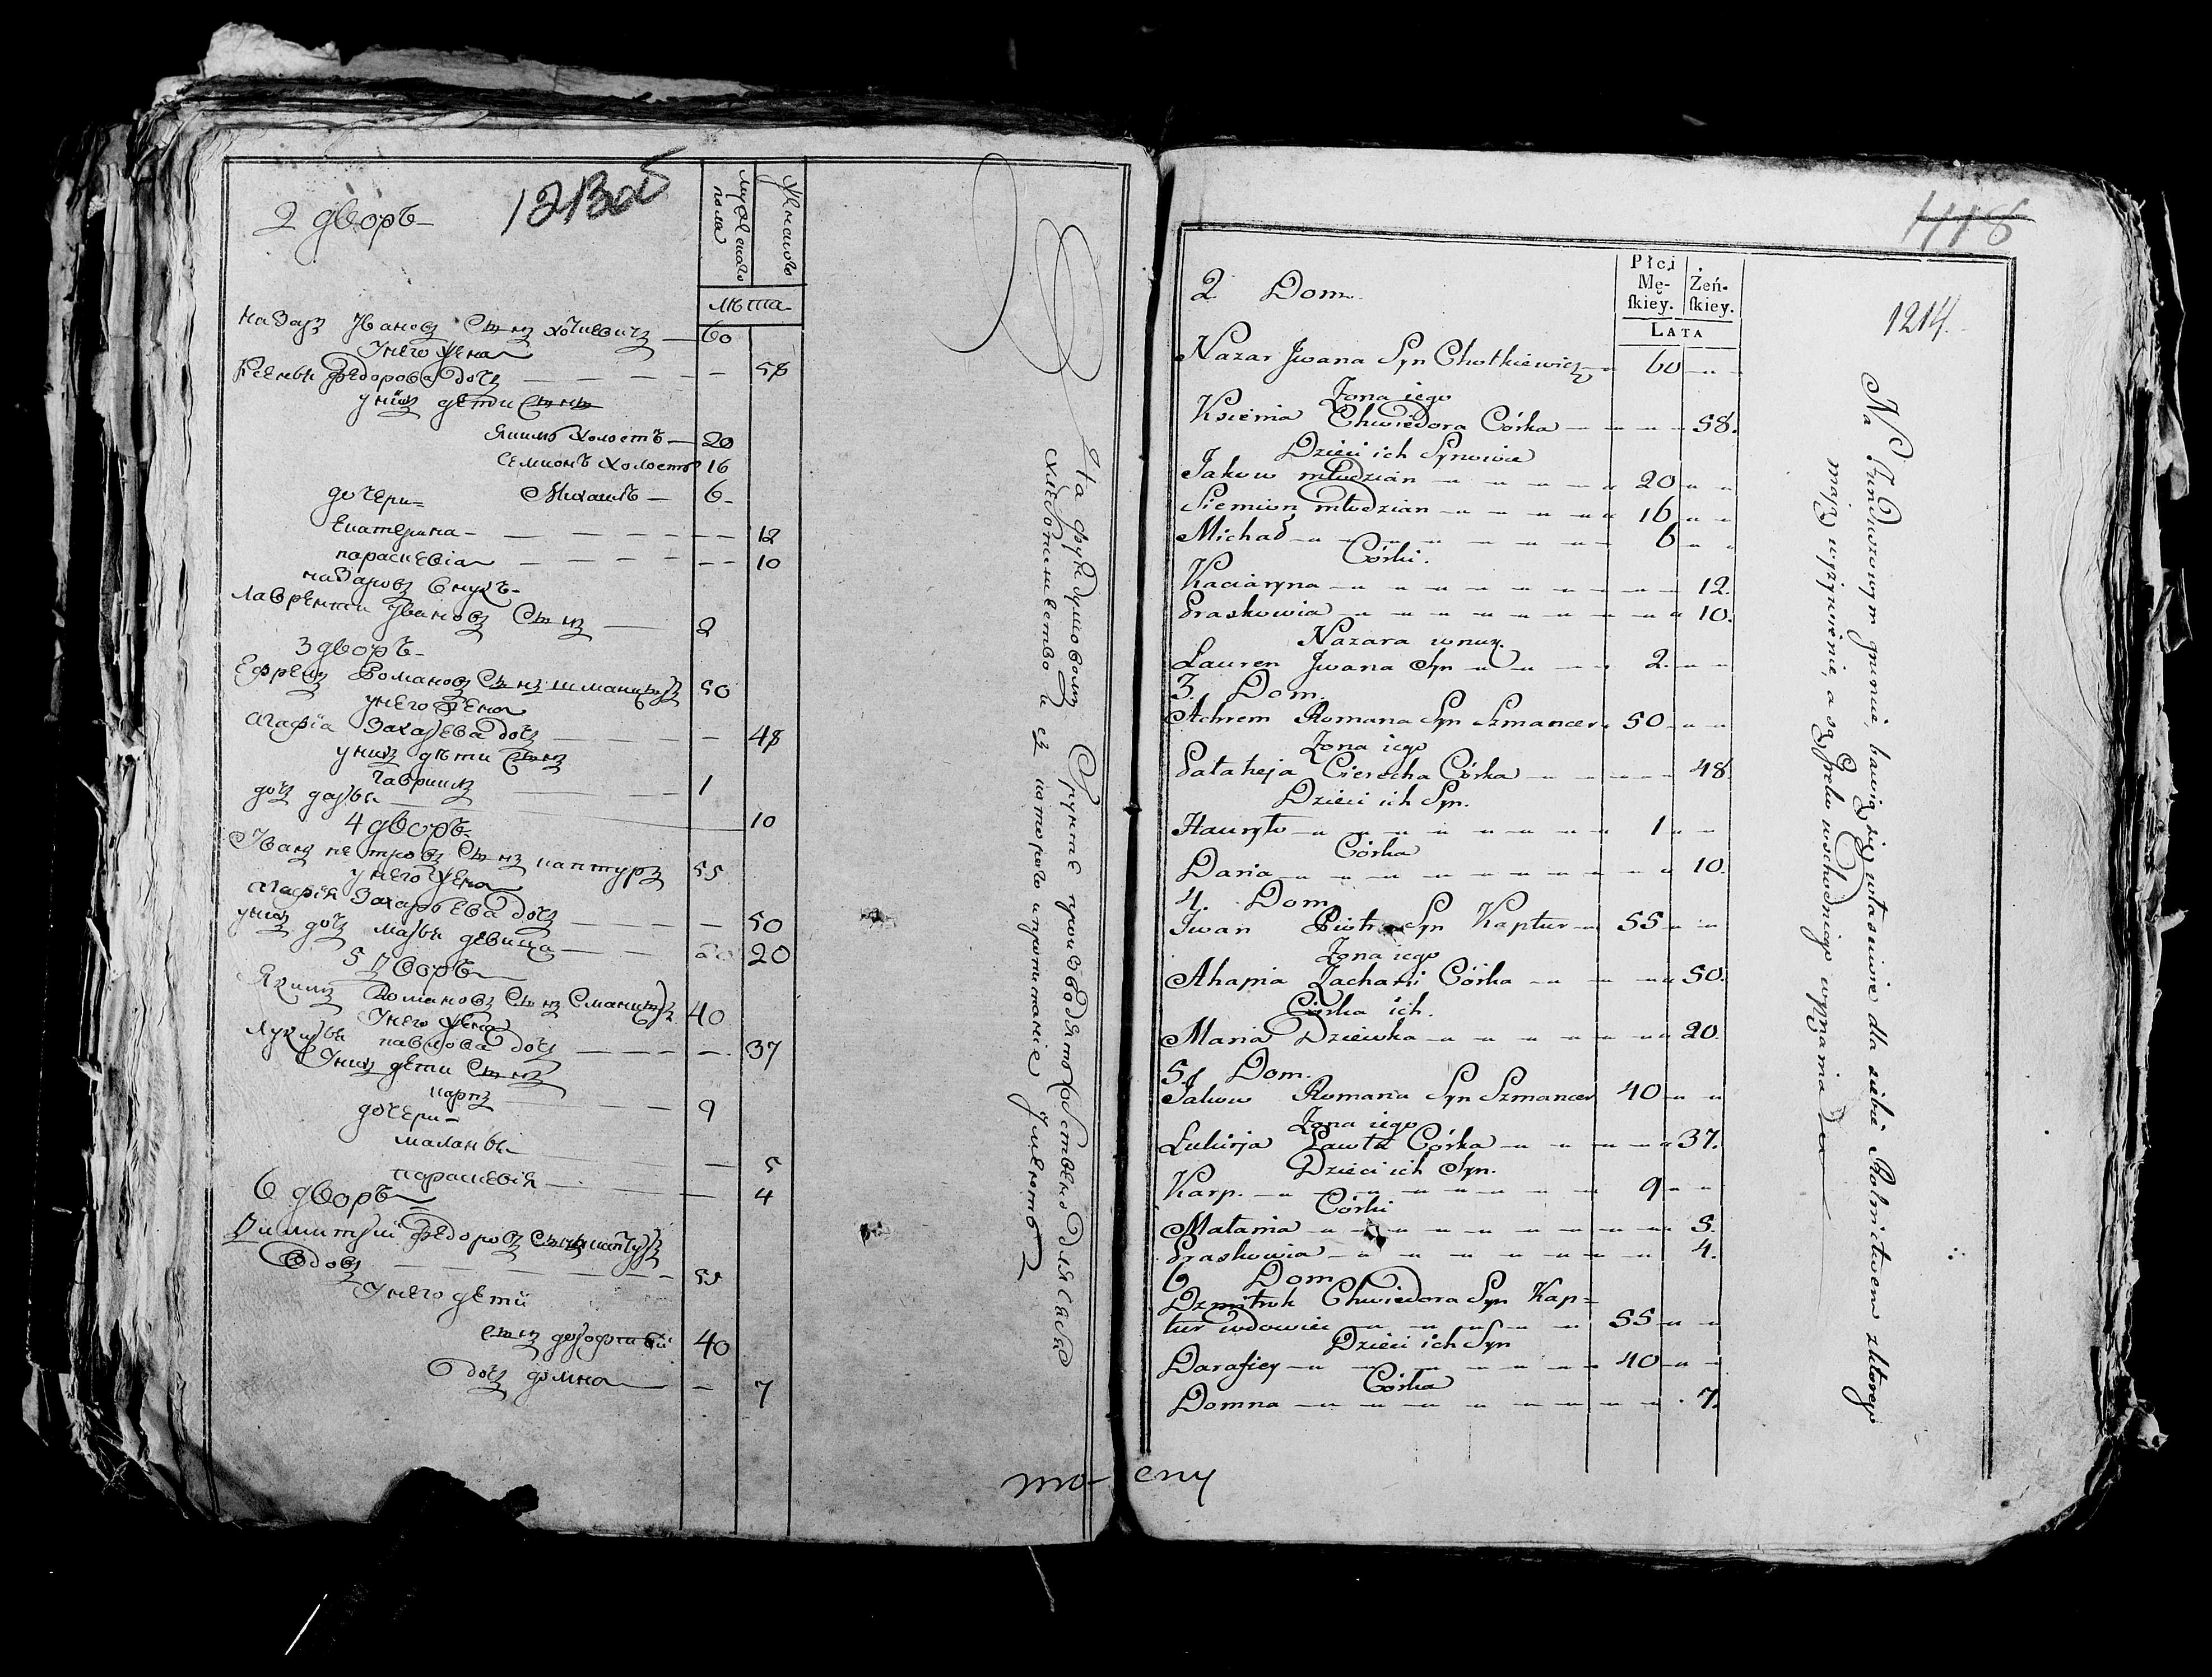 2 дворъ
1213об
мужескаго пола
женского
лѣта
Назаръ Ивановъ Сынъ хоткевичъ — 60
У него жена
Ксенья Федорова дочь — — — — 58
у нихъ дети Сыны
Якимъ холостъ — 20
Семионъ холостъ 16
Михаилъ — 6
дочери
Екатерина — — — — 12
параскевиа — — — — 10
назаровъ внукъ
Лаврентий Ивановъ Сынъ — 2
3 дворъ
Ефремъ Романовъ Сынъ шманцыръ 50
у него жена
агафия Захарьева дочь — — — — 48
у нихъ дѣти Сынъ
Гаврилъ — — — 1
дочь дарья — 10
4 дворъ
Иванъ петровъ Сынъ каптуръ 55
у него жена
агафия Захарьева дочь — — — 50
у нихъ дочь марья девица — — 20
5 Дворъ
Якимъ Романовъ Сынъ Сманцыръ 40
У него жена
Лукирья павлова дочь — — — — 37
У нихъ дети Сынъ
карпъ — — — 9
дочери
маланья — 5
параскевия — 4
6 дворъ
Димитрий Федоровъ Сынъ каптуръ
вдовъ — — — — 55
У него дети
сынъ дорофтий 40
дочь домна — 7
На фундушовомъ Грунте производятъ собственно для себя
хлебопашество и съ которого пропитание Имеютъ
418
1214.
2 Dom.
Płci Mę-skiey.
Żeń-skiey.
LATA
Nazar Jwana Syn Chotkiewicz 60
Żona iego
Ksienia Chwiedora Córka 58.
Dzieci ich Synowie
Jakow młodzian 20
Siemion młodzian 16
Michał 6
Córki.
Kaciaryna 12.
Praskowia 10.
Nazara wnuk.
Lauren Jwana Syn 2.
3. Dom.
Achrem Romana Syn Szmancer 50
Żona iego
Pałaheja Cierecha Córka 48.
Dzieci ich Syn.
Hauryło 1
Córka
Daria 10.
4. Dom
Jwan Piotra Syn Kaptur 55
Żona iego
Ahapia Zacharii Córka 50.
Córka ich.
Maria Dziewka 20.
5. Dom.
Jakow Romana Syn Szmancer 40
Żona iego
Łukirja Pawła Córka 37.
Dzieci ich Syn.
Karp. 9
Córki
Małania 5.
Praskowia 4.
6 Dom
Dzmitruk Chwiedora Syn Kap=
tur wdowiec 55
Dzieci ich Syn
Darafiey 40
Córka
Domna 7.
Na Funduszowym gruncie, bawią się własciwie dla siebie Rolnictwem z ktorego
mają wyżywienie, a są Greko wschodniego wyznania
то-
сту